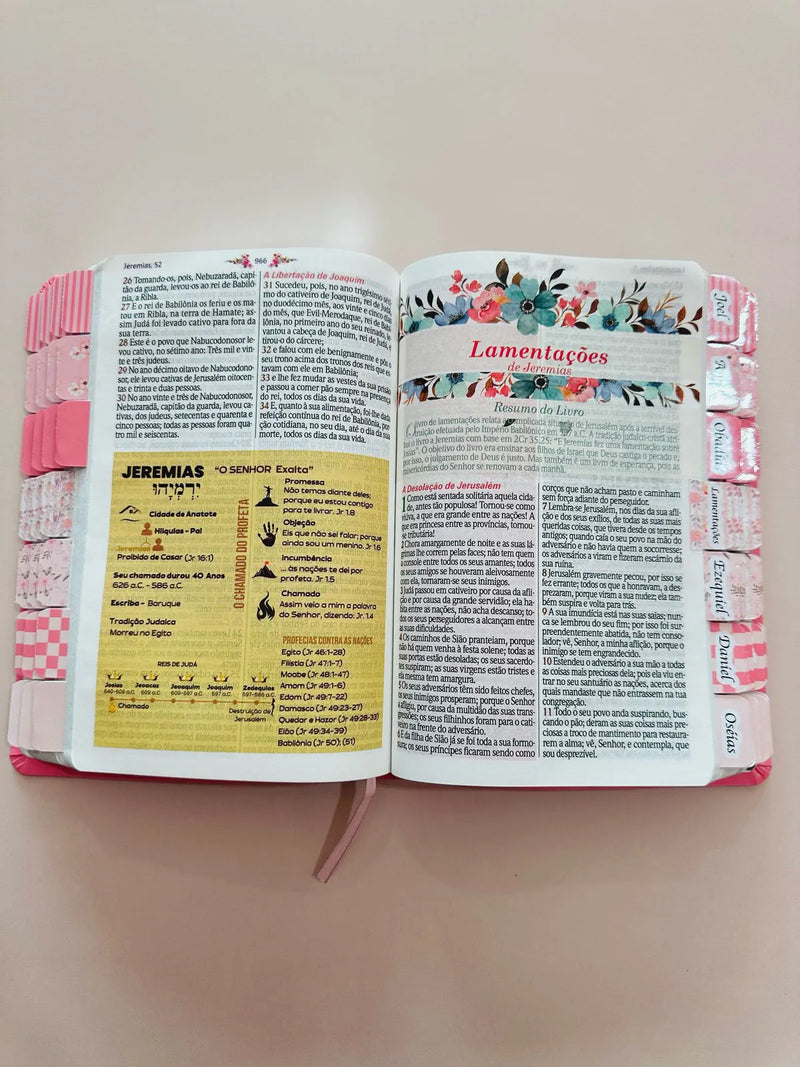 Jeremias, 52
966
26 Tomando-os, pois, Nebuzaradã, capi-
tão da guarda, levou-os ao rei de Babilô-
nia, a Ribla.
27 E o rei de Babilônia os feriu e os ma-
tou em Ribla, na terra de Hamate; as-
sim Judá foi levado cativo para fora da
sua terra.
28 Este é o povo que Nabucodonosor le-
vou cativo, no sétimo ano: Três mil e vin-
te e três judeus.
29 No ano décimo oitavo de Nabucodono-
sor, ele levou cativas de Jerusalém oitocen-
tas e trinta e duas pessoas.
30 No ano vinte e três de Nabucodonosor,
Nebuzaradã, capitão da guarda, levou ca-
tivas, dos judeus, setecentas e quarenta e
cinco pessoas; todas as pessoas foram qua-
tro mil e seiscentas.
A Libertação de Joaquim
31 Sucedeu, pois, no ano trigésimo séti-
mo do cativeiro de Joaquim, rei de Judá,
no duodécimo mês, aos vinte e cinco dias
do mês, que Evil-Merodaque, rei de Babi-
lônia, no primeiro ano do seu reinado, le-
vantou a cabeça de Joaquim, rei de Judá, e
tirou-o do cárcere;
32 e falou com ele benignamente e pôs o
seu trono acima dos tronos dos reis que es-
tavam com ele em Babilônia;
33 e lhe fez mudar as vestes da sua prisão
e passou a comer pão sempre na presença
do rei, todos os dias da sua vida.
34 E, quanto à sua alimentação, foi-lhe dada
refeição contínua do rei de Babilônia, por-
ção cotidiana, no seu dia, até o dia da sua
morte, todos os dias da sua vida.
JEREMIAS
יִרְמְיָהוּ
"O SENHOR Exalta"
Cidade de Anatote
Hilquias - Pai
Jeremias
Proibido de Casar (Jr 16:1)
Seu chamado durou 40 Anos
626 a.C. - 586 a.C.
Escriba - Baruque
Tradição Judaica
Morreu no Egito
O CHAMADO DO PROFETA
Promessa
Não temas diante deles;
porque eu estou contigo
para te livrar. Jr 1.8
Objeção
Eis que não sei falar; porque
ainda sou um menino. Jr 1.6
Incumbência
... às nações te dei por
profeta. Jr 1.5
Chamado
Assim veio a mim a palavra
do Senhor, dizendo: Jr 1.4
REIS DE JUDÁ
Josias
640-609 a.C.
Jeoacas
609 a.C.
Jeoaquim
609-597 a.C.
Joaquim
597 a.C.
Zedequias
597-586 a.C.
Chamado
Destruição de
Jerusalém
PROFECIAS CONTRA AS NAÇÕES
Egito (Jr 46:1-28)
Filístia (Jr 47:1-7)
Moabe (Jr 48:1-47)
Amom (Jr 49:1-6)
Edom (Jr 49:7-22)
Damasco (Jr 49:23-27)
Quedar e Hazor (Jr 49:28-33)
Elão (Jr 49:34-39)
Babilônia (Jr 50); (51)
Lamentações
de Jeremias
Resumo do Livro
O livro de lamentações relata a complicada situação de Jerusalém após a terrível des-
truição efetuada pelo Império Babilônico em 587 a.C. A tradição judaico-cristã atri-
bui o livro a Jeremias com base em 2Cr 35.25: "E Jeremias fez uma lamentação sobre
Josias". O objetivo do livro era ensinar aos filhos de Israel que Deus castiga o pecado e,
por isso, o julgamento de Deus é justo. Mas também é um livro de esperança, pois as
misericórdias do Senhor se renovam a cada manhã.
A Desolação de Jerusalém
1 Como está sentada solitária aquela cida-
de, antes tão populosa! Tornou-se como
viúva, a que era grande entre as nações! A
que era princesa entre as províncias, tornou-
se tributária!
2 Chora amargamente de noite e as suas lá-
grimas lhe correm pelas faces; não tem quem
a console entre todos os seus amantes; todos
os seus amigos se houveram aleivosamente
com ela, tornaram-se seus inimigos.
3 Judá passou em cativeiro por causa da afli-
ção e por causa da grande servidão; ela ha-
bita entre as nações, não acha descanso; to-
dos os seus perseguidores a alcançam entre
as suas dificuldades.
4 Os caminhos de Sião pranteiam, porque
não há quem venha à festa solene; todas as
suas portas estão desoladas; os seus sacerdo-
tes suspiram; as suas virgens estão tristes e
ela mesma tem amargura.
5 Os seus adversários têm sido feitos chefes,
os seus inimigos prosperam; porque o Senhor
a afligiu, por causa da multidão das suas trans-
gressões; os seus filhinhos foram para o cati-
veiro na frente do adversário.
6 E da filha de Sião já se foi toda a sua formo-
sura; os seus príncipes ficaram sendo como
corços que não acham pasto e caminham
sem força adiante do perseguidor.
7 Lembra-se Jerusalém, nos dias da sua afli-
ção e dos seus exílios, de todas as suas mais
queridas coisas, que tivera desde os tempos
antigos; quando caía o seu povo na mão do
adversário e não havia quem a socorresse;
os adversários a viram e fizeram escárnio da
sua ruína.
8 Jerusalém gravemente pecou, por isso se
fez errante; todos os que a honravam, a des-
prezaram, porque viram a sua nudez; ela tam-
bém suspira e volta para trás.
9 A sua imundícia está nas suas saias; nun-
ca se lembrou do seu fim; por isso foi sur-
preendentemente abatida, não tem conso-
lador; vê, Senhor, a minha aflição, porque o
inimigo se tem engrandecido.
10 Estendeu o adversário a sua mão a todas
as coisas mais preciosas dela; pois ela viu en-
trar no seu santuário as nações, acerca dos
quais mandaste que não entrassem na tua
congregação.
11 Todo o seu povo anda suspirando, bus-
cando o pão; deram as suas coisas mais pre-
ciosas a troco de mantimento para restaura-
rem a alma; vê, Senhor, e contempla, que
sou desprezível.
Joel
Obadias
Lamentações
Ezequiel
Daniel
Oséias